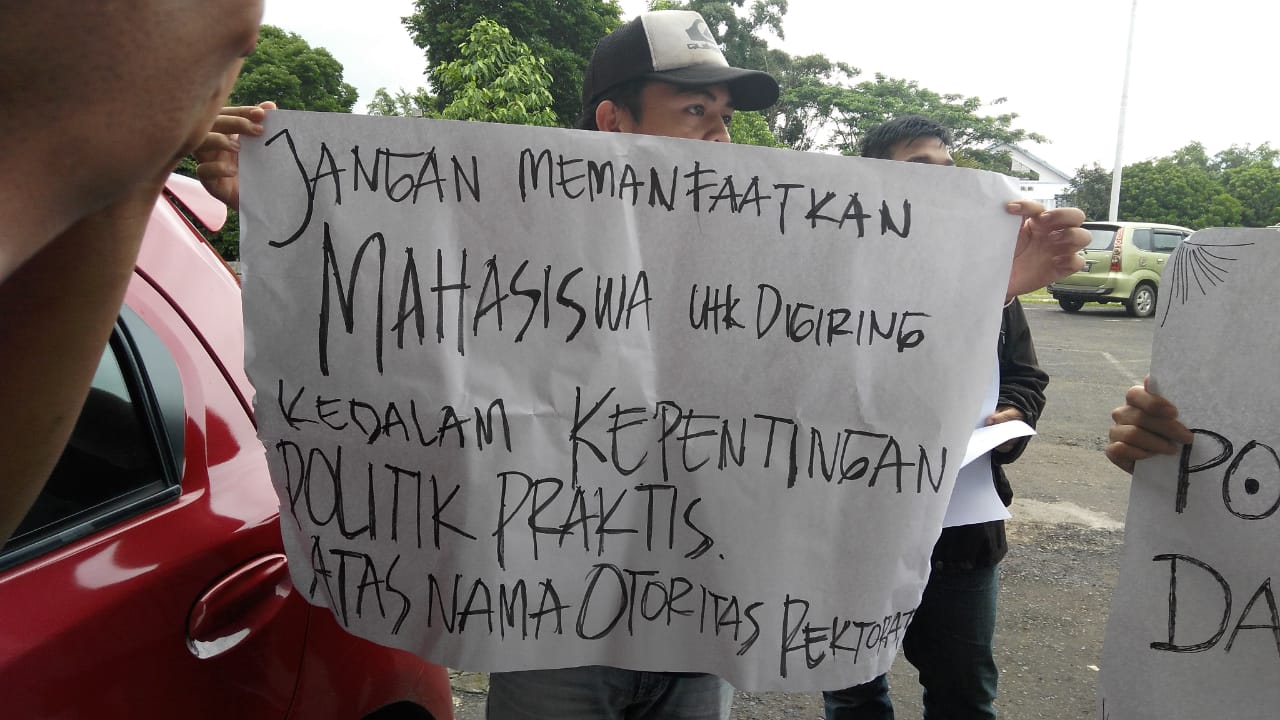 JANGAN MEMANFAATKAN
MAHASISWA UtK DIGIRING
KEDALAM KEPENTINGAN
POLITIK PRAKTIS.
ATAS NAMA OTORITAS REKTORAT
PO
DA